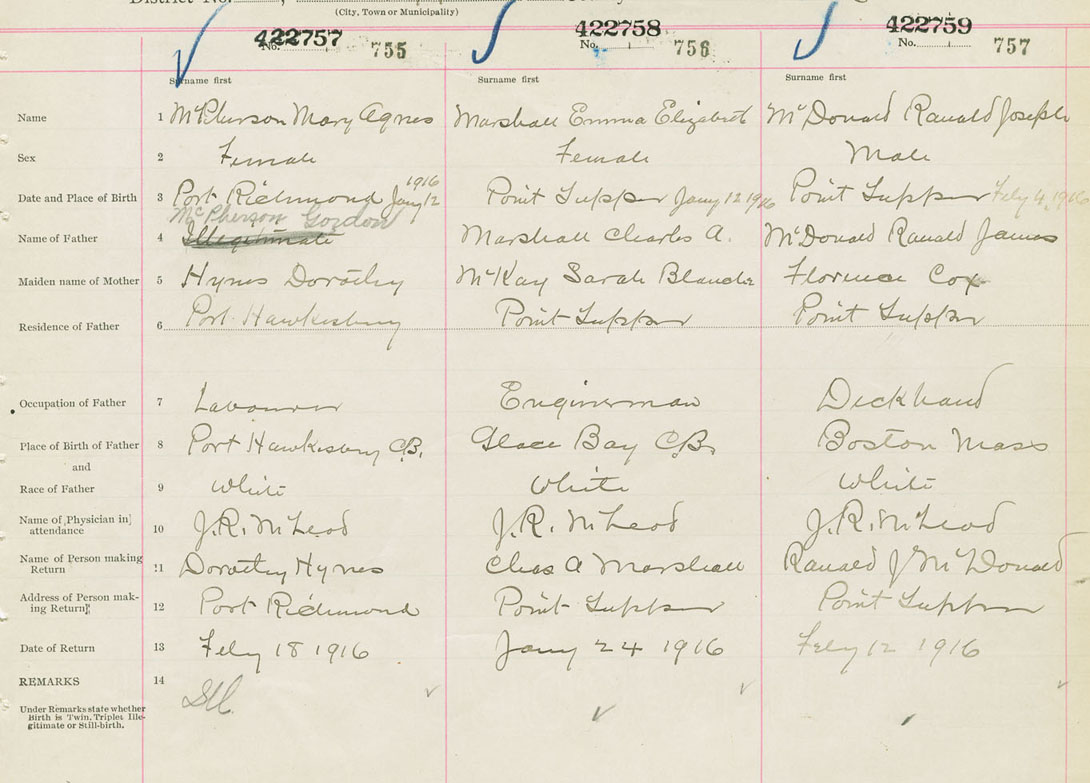 District No.
(City, Town or Municipality)
422757 422758 422759
No. 755 No. 1 756 No. 757
Surname first Surname first Surname first
Name 1 McPherson Mary Agnes Marshall Emma Elizabeth McDonald Ranald Joseph
Sex 2 Female Female Male
Date and Place of Birth 3 Port Richmond Jany 12 1916 Point Tupper Jany 12 1916 Point Tupper Feby 4, 1916
McPherson Gordon
Name of Father 4 Illegitimate Marshall Charles A. McDonald Ranald James
Maiden name of Mother 5 Hynes Dorothy McKay Sarah Blanche Florence Cox
Residence of Father 6 Port Hawkesbury Point Tupper Point Tupper
Occupation of Father 7 Labourer Engineman Deckhand
Place of Birth of Father 8 Port Hawkesbury C.B. Glace Bay C.B. Boston Mass
and
Race of Father 9 White White White
Name of Physician in attendance 10 J. R. McLeod J. R. McLeod J. R. McLeod
Name of Person making Return 11 Dorothy Hynes Chas A Marshall Ranald J McDonald
Address of Person making Return 12 Port Richmond Point Tupper Point Tupper
Date of Return 13 Feby 18 1916 Jany 24 1916 Feby 12 1916
REMARKS 14
Under Remarks state whether
Birth is Twin, Triplet, Ille-
gitimate or Still-birth.